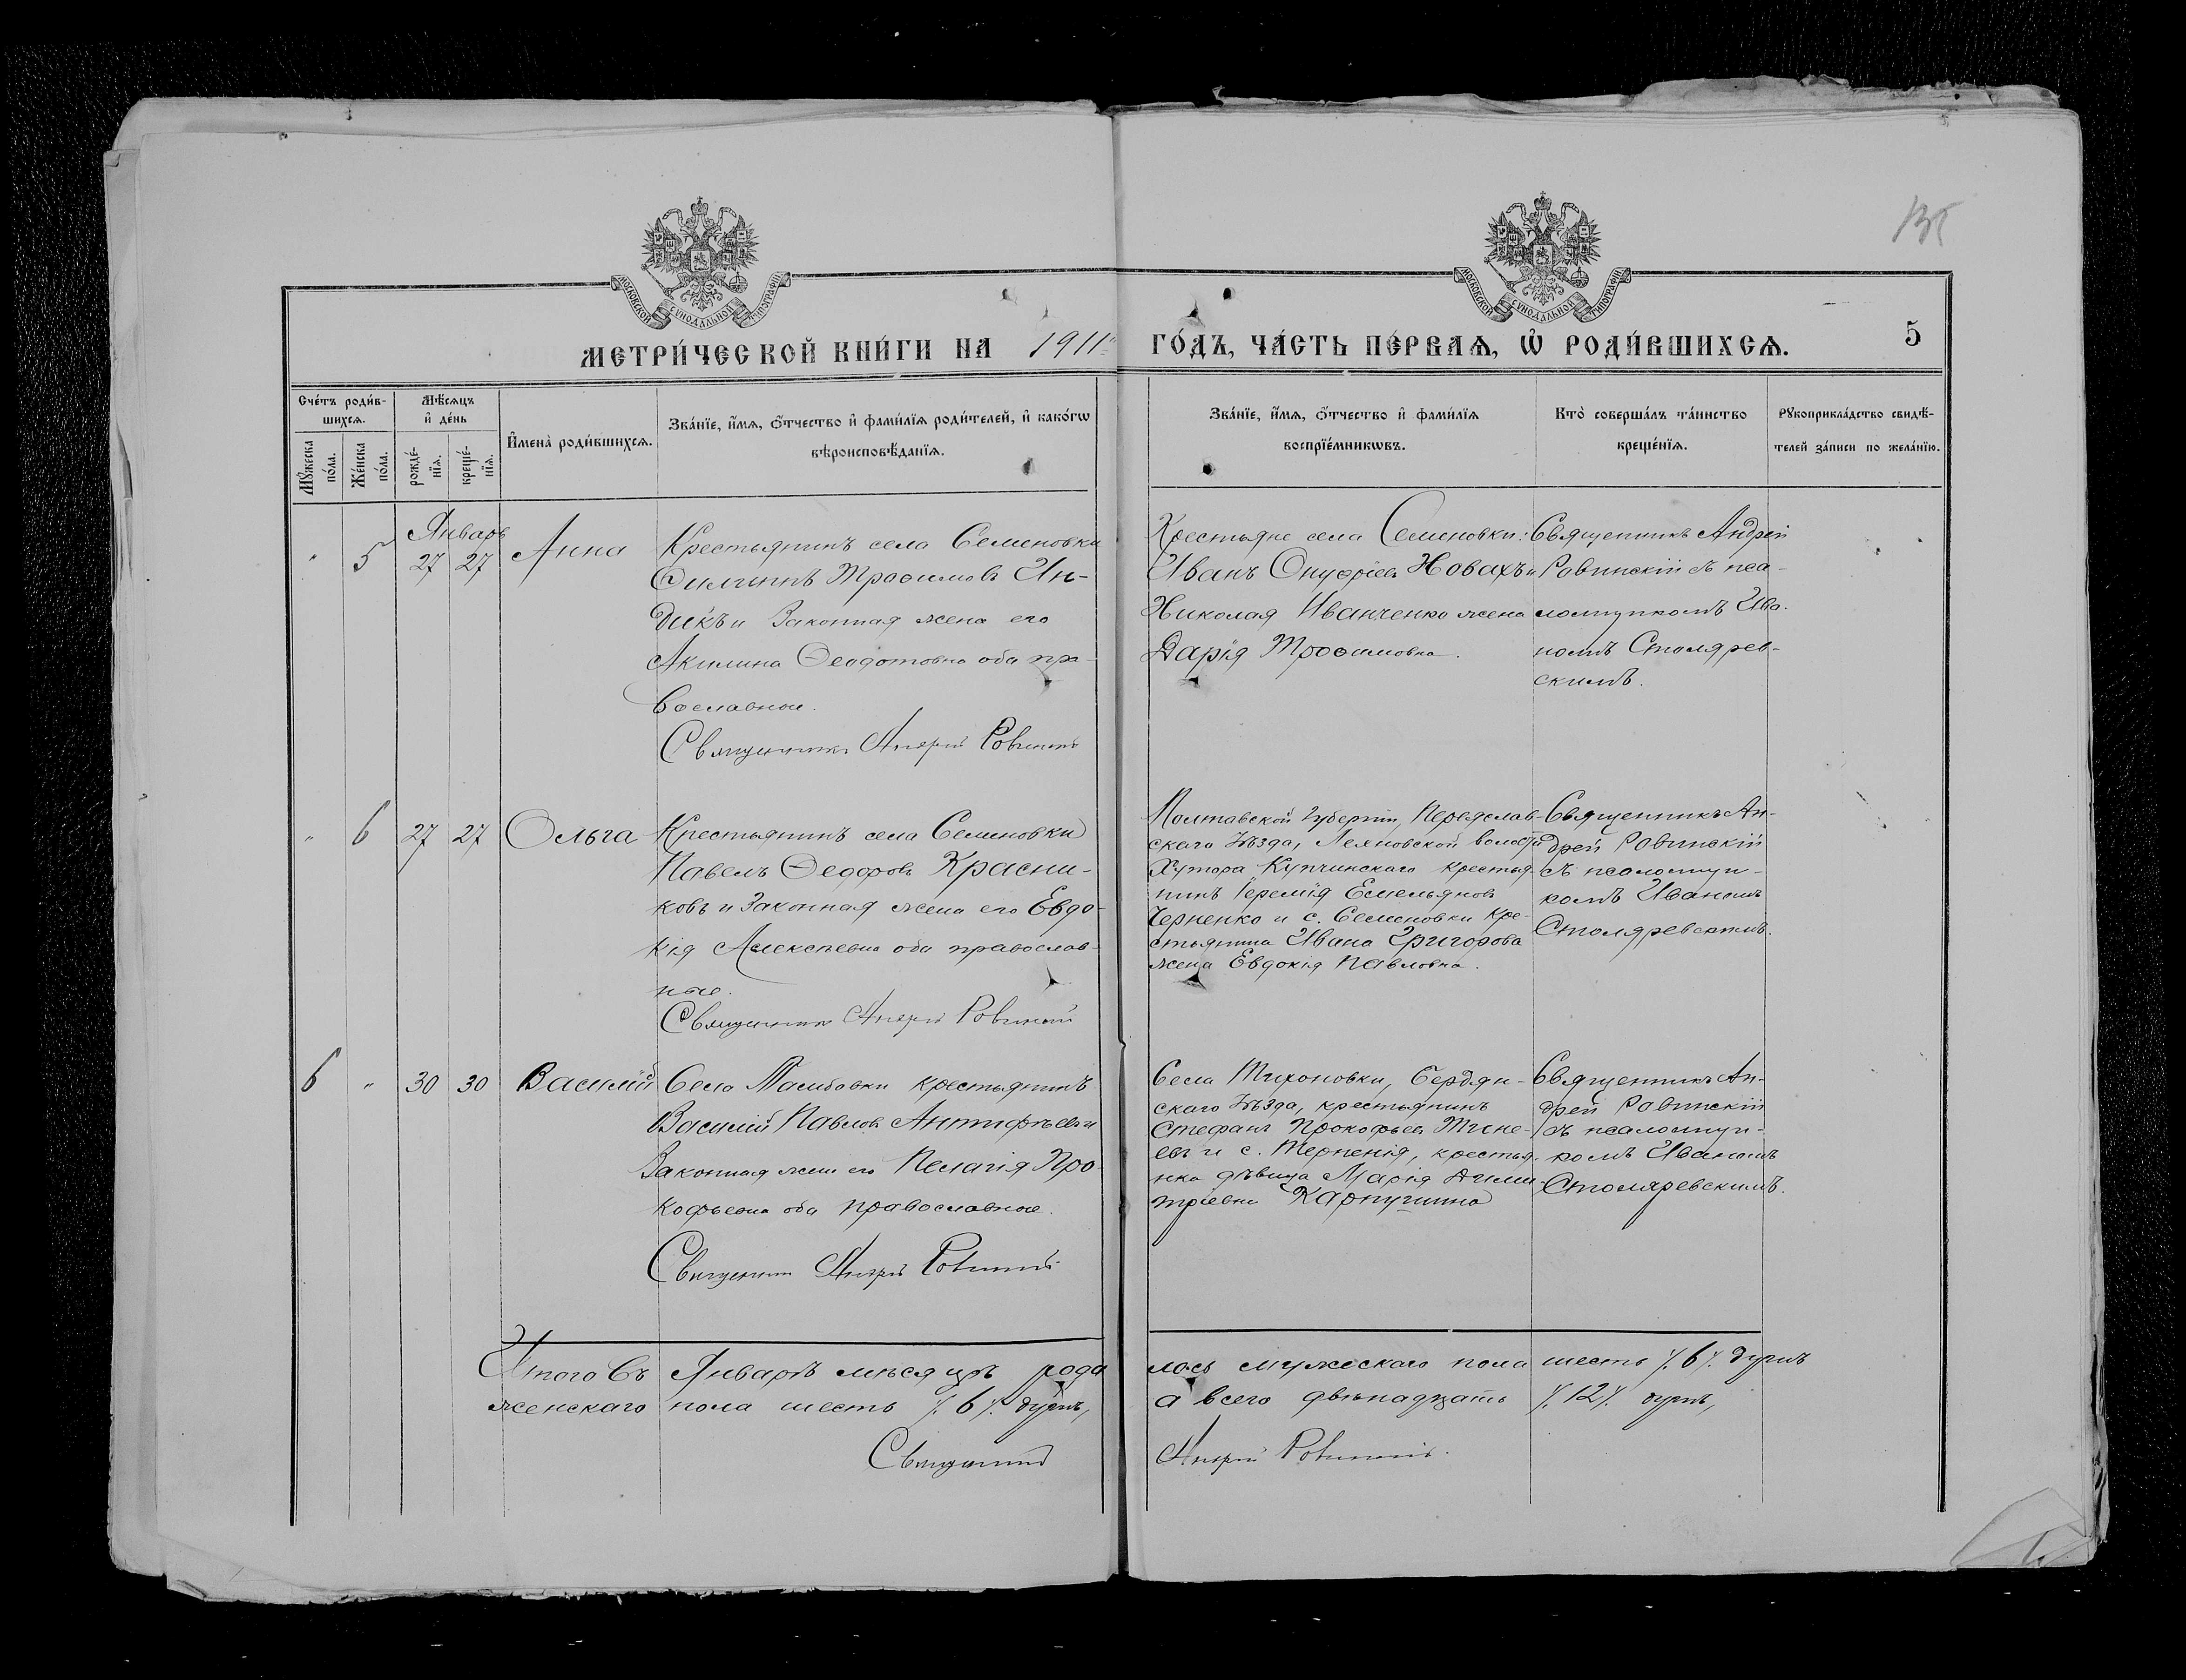 135
МОСКОВСКОЙ СУНОДАЛЬНОЙ ТИПОГРАФІИ
МОСКОВСКОЙ СУНОДАЛЬНОЙ ТИПОГРАФІИ
МЕТРИ́ЧЕСКОЙ КНИ́ГИ НА 1911 ГО́ДЪ, ЧА́СТЬ ПЕ́РВАѦ, Ѡ҆ РОДИ́ВШИХСѦ. 5
Сче́тъ роди́в-
шихсѧ.
Мꙋ́жеска по́ла.
Же́нска по́ла.
Мѣ́сѧцъ
и҆ де́нь
рожде́-нїѧ.
креще́-нїѧ.
И҆мена̀ роди́вшихсѧ.
Зва́нїе, и҆́мѧ, ѻ҆́тчество и҆ фами́лїѧ роди́телей, и҆ како́гѡ
вѣроисповѣ́данїѧ.
Зва́нїе, и҆́мѧ, ѻ҆́тчество и҆ фами́лїѧ
воспрїе́мникѡвъ.
Кто̀ соверша́лъ та́инство
креще́нїѧ.
Рꙋкоприкла́дство свидѣ́-
телей за́писи по жела́нїю.
Январь
" 5 27 27 Анна
Крестьянинъ села Семеновки
Филиппъ Трофимовъ Ин-
дикъ и Законная жена его
Акилина Феодотовна оба пра-
вославные.
Священникъ Андрей Ровинскій
Крестьяне села Семеновки:
Иванъ Онуфріевъ Новахъ и
Николая Иванченко жена
Дарія Трофимовна.
Священникъ Андрей
Ровинскій съ пса-
ломщикомъ Ива-
номъ Столярев-
скимъ.
" 6 27 27 Ольга
Крестьянинъ села Семеновки
Павелъ Феодоровъ Красни-
ковъ и Законная жена его Евдо-
кія Алексѣевна оба православ-
ные.
Священникъ Андрей Ровинскій
Полтавской Губерніи, Переяслав-
скаго Уѣзда, волости
Хутора Купчинскаго крестья-
нинъ Іеремія Емельяновъ
Черненко и с. Семеновки кре-
стьянина Ивана Григорова
жена Евдокія Павловна.
Священникъ Ан-
дрей Ровинскій
съ псаломщи-
комъ Иваномъ
Столяревскимъ.
6 " 30 30 Василій
Села Тамбовки крестьянинъ
Василій Павловъ Антифѣевъ и
Законная жена его Пелагія Про-
кофьевна оба православные.
Священникъ Андрей Ровинскій
Села Тихоновки, Бердян-
скаго Уѣзда, крестьянинъ
Стефанъ Прокофьевъ Тине-
евъ и с. Терпенія, крестья-
нка дѣвица Марія Дими-
тріевна Карпушина
Священникъ Ан-
дрей Ровинскій
съ псаломщи-
комъ Иваномъ
Столяревскимъ.
Итого въ Январѣ мѣсяцѣ роди лось мужескаго пола шесть /. 6 /. душъ
женскаго пола шесть /. 6 /. душъ, а всего двѣнадцать /. 12 /. душъ,
Священникъ Андрей Ровинскій.